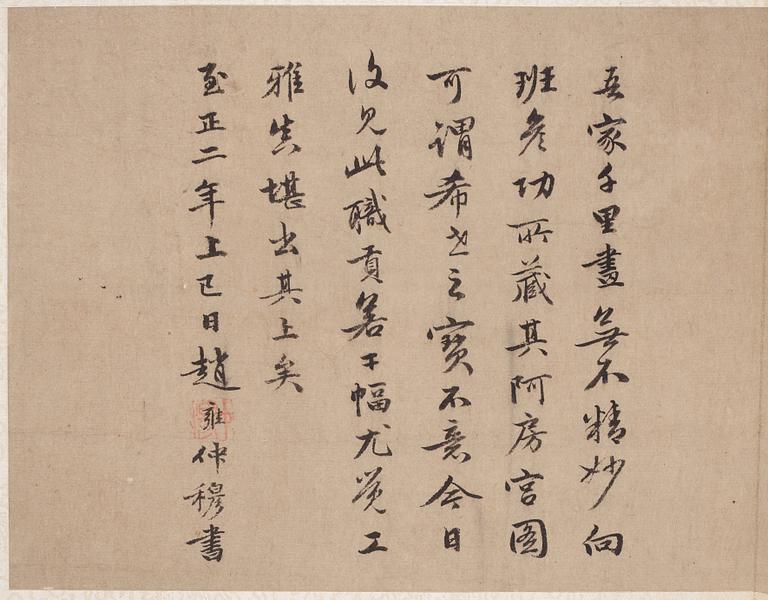 吾家千里畫無不精妙向
班彥功所藏其阿房宮圖
可謂希世之寶不意今日
復見此職貢若干幅尤覺工
雅真堪出其上矣
至正二年上巳日趙雍仲穆書